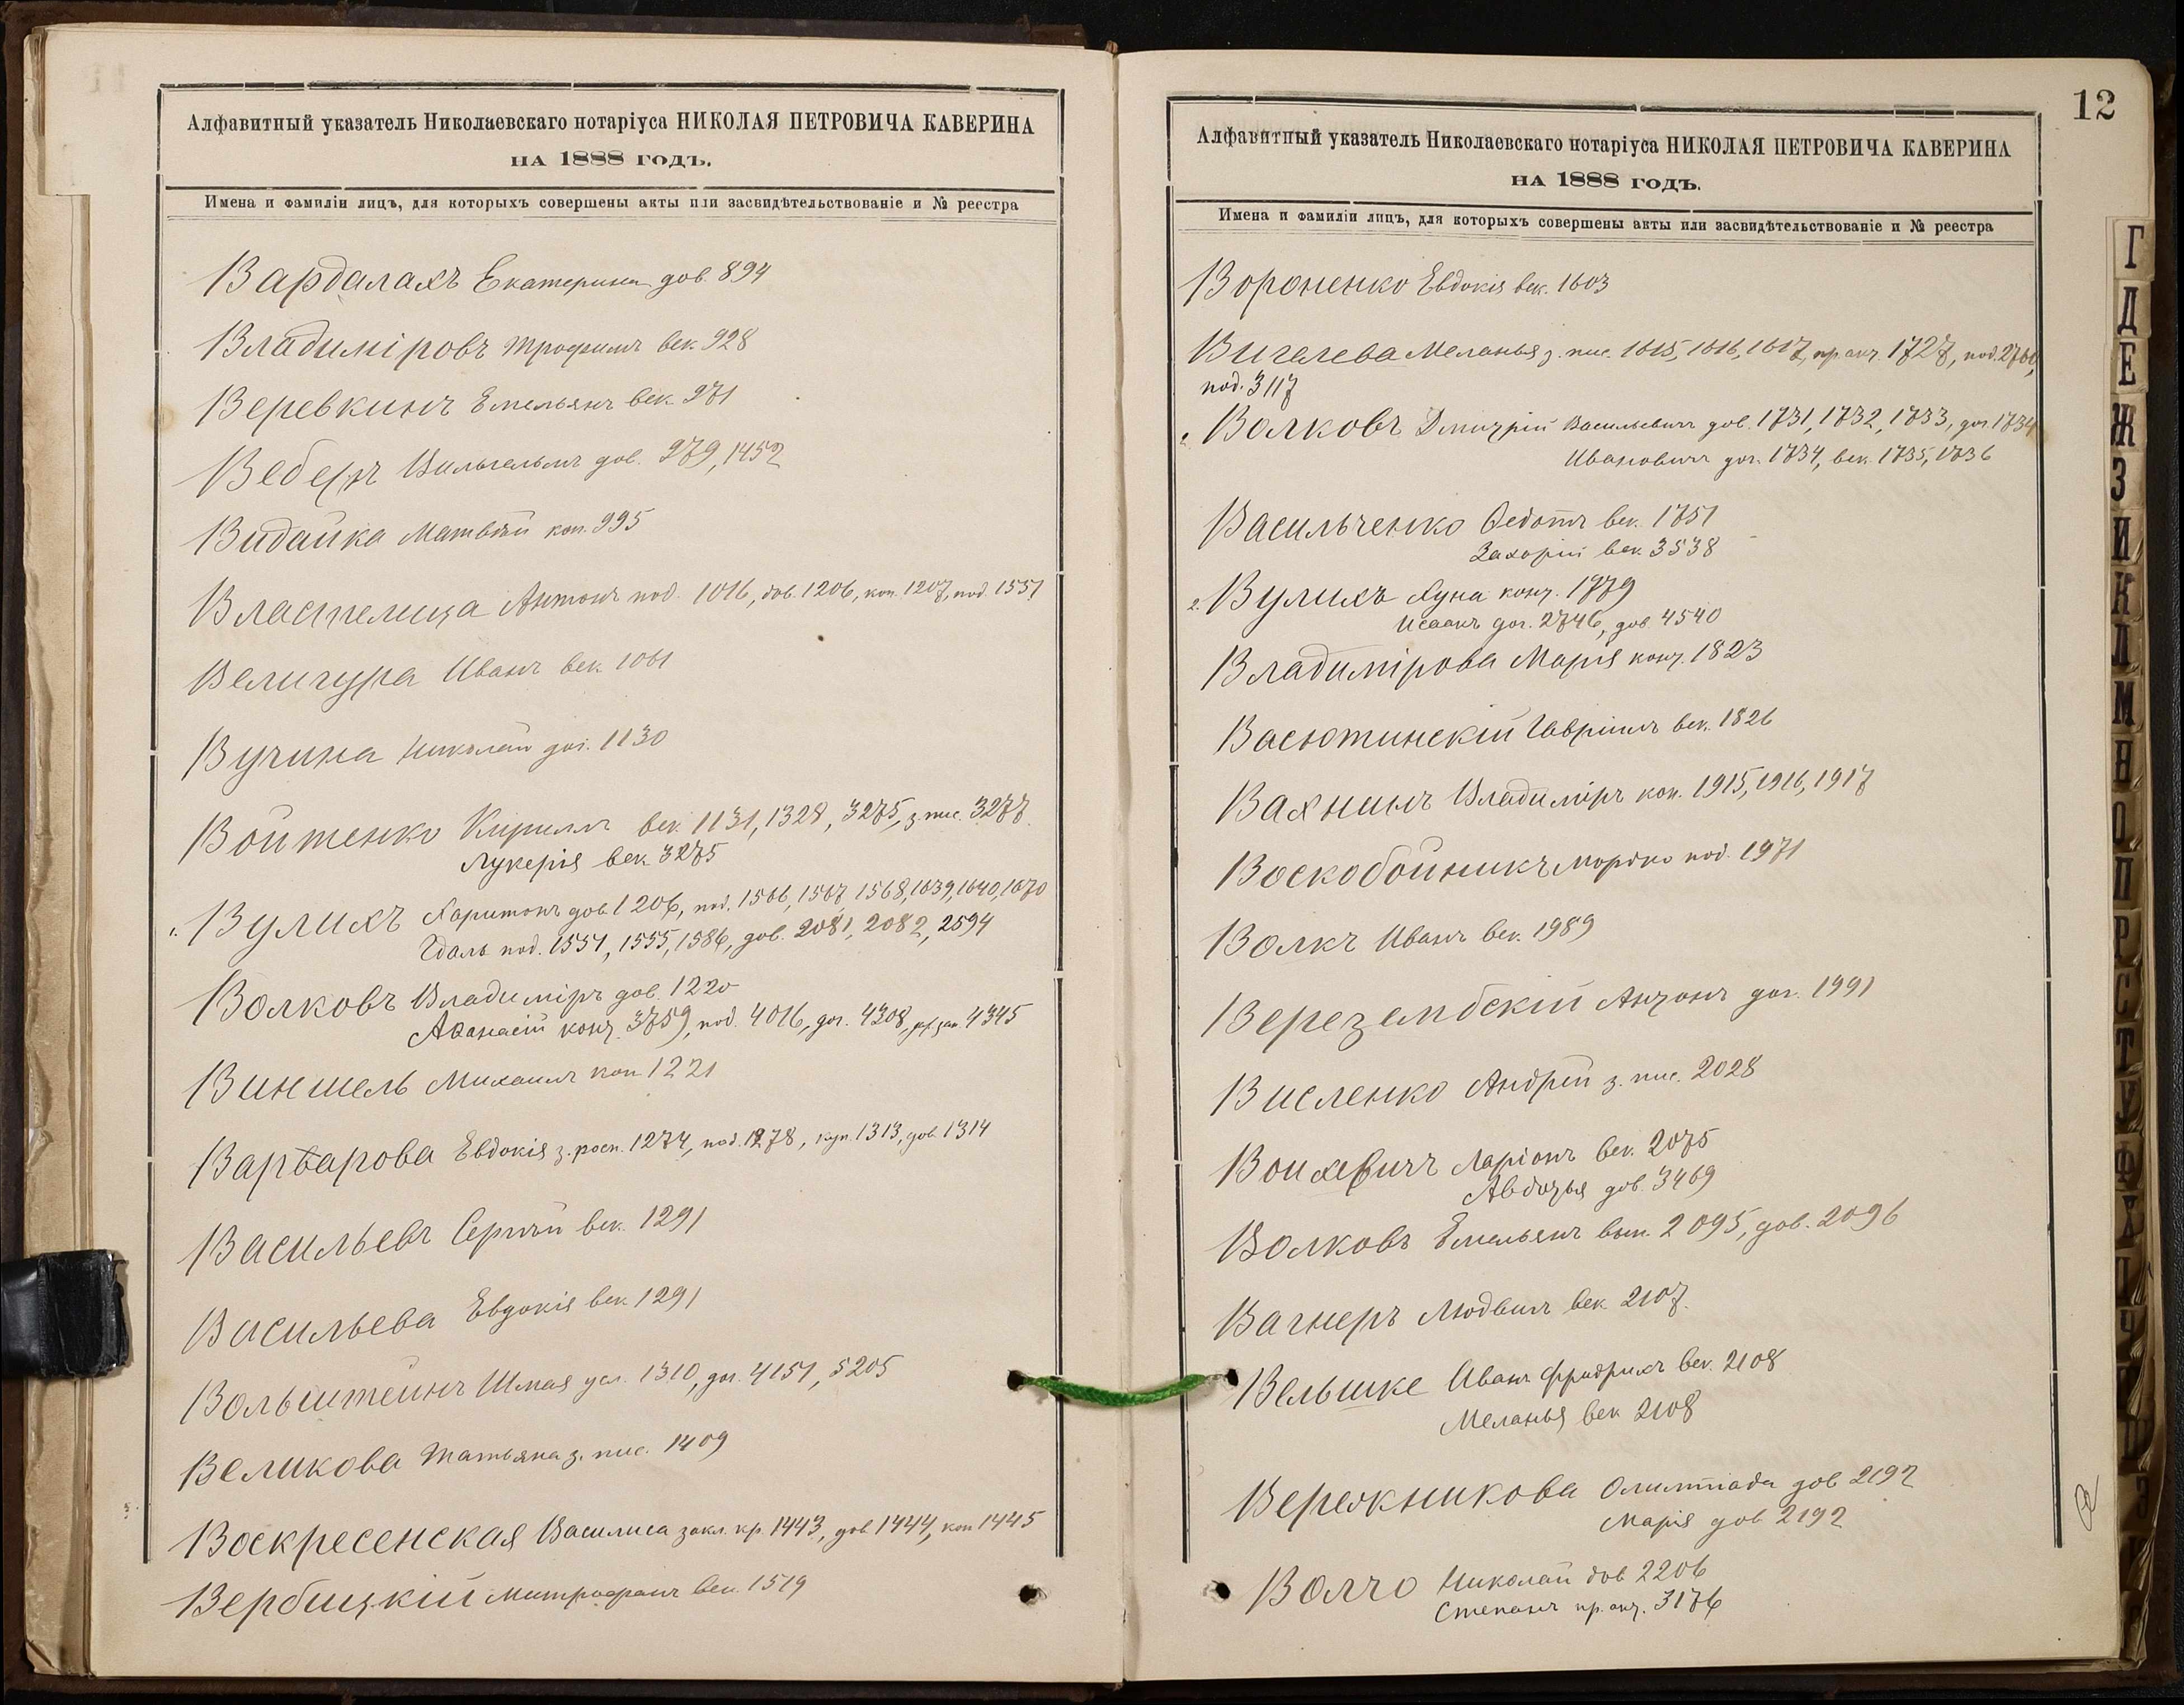 Алфавитный указатель Николаевскаго нотаріуса НИКОЛАЯ ПЕТРОВИЧА КАВЕРИНА
НА 1888 ГОДЪ.
Имена и фамиліи лицъ, для которыхъ совершены акты или засвидѣтельствованіе и № реестра
Вардалахъ Екатерина дов. 894
Владиміровъ Трофимъ век. 928
Веревкинъ Емельянъ век. 971
Веберъ Вильгельмъ дов. 979, 1452
Видайка Матвѣй коп. 995
Властелица Антонъ под. 1016, дов. 1206, коп. 1207, под. 1551
Величура Иванъ век. 1061
Вучина Николай дог. 1130
Войтенко Кирилъ век. 1131, 1328, 3275, з. пис. 3277
Лукерія век. 3275
Вулихъ Харитонъ дов. 1206, под. 1566, 1567, 1568, 1639, 1640, 1670
Гдаль под. 1551, 1555, 1586, дов. 2081, 2082, 2594
Волковъ Владиміръ дов. 1220
Аѳанасій конт. 3759, под. 4016, дог. 4308, 4345
Виншель Михаилъ коп. 1221
Варварова Евдокія з. росп. 1274, под. 1278, куп. 1313, дов. 1314
Васильевъ Сергѣй век. 1291
Васильева Евдокія век. 1291
Вольштейнъ Шмая усл. 1310, дог. 4151, 5205
Великова Татьяна з. пис. 1409
Воскресенская Василиса закл. кр. 1443, дов. 1444, коп. 1445
Вербицкій Митрофанъ век. 1519
12
Алфавитный указатель Николаевскаго нотаріуса НИКОЛАЯ ПЕТРОВИЧА КАВЕРИНА
НА 1888 ГОДЪ.
Имена и фамиліи лицъ, для которыхъ совершены акты или засвидѣтельствованіе и № реестра
Вороненко Евдокія век. 1603
Вигелева Меланья з. пис. 1615, 1616, 1617, пр. акт. 1727, под. 2760,
под. 3117
Волковъ Дмитрій Васильевичъ дов. 1731, 1732, 1733, дог. 1734
Ивановичъ дог. 1734, век. 1735, 1736
Васильченко Ѳедотъ век. 1751
Захорій век. 3538
2. Вулихъ Хуна конт. 1779
Исаакъ дог. 2746, дов. 4540
Владимірова Марія конт. 1823
Васютинскій Гавріилъ век. 1826
Вахнинъ Владиміръ коп. 1915, 1916, 1917
Воскобойникъ Мордко под. 1971
Волкъ Иванъ век. 1989
Верезембскій Антонъ дог. 1991
Висленко Андрей з. пис. 2028
Войхевичъ Ларіонъ век. 2075
Авдотья дов. 3469
Волковъ Емельянъ вып. 2095, дов. 2096
Вагнеръ Людвигъ век. 2107
Вельшке Иванъ Фридрихъ век. 2108
Меланья век. 2108
Вережникова Олимпіада дов. 2192
Марія дов. 2192
Волчо Николай дов. 2206
Степанъ пр. акт. 3176
Г
Д
Е
Ж
З
И
К
Л
М
Н
О
П
Р
С
Т
У
Ф
Х